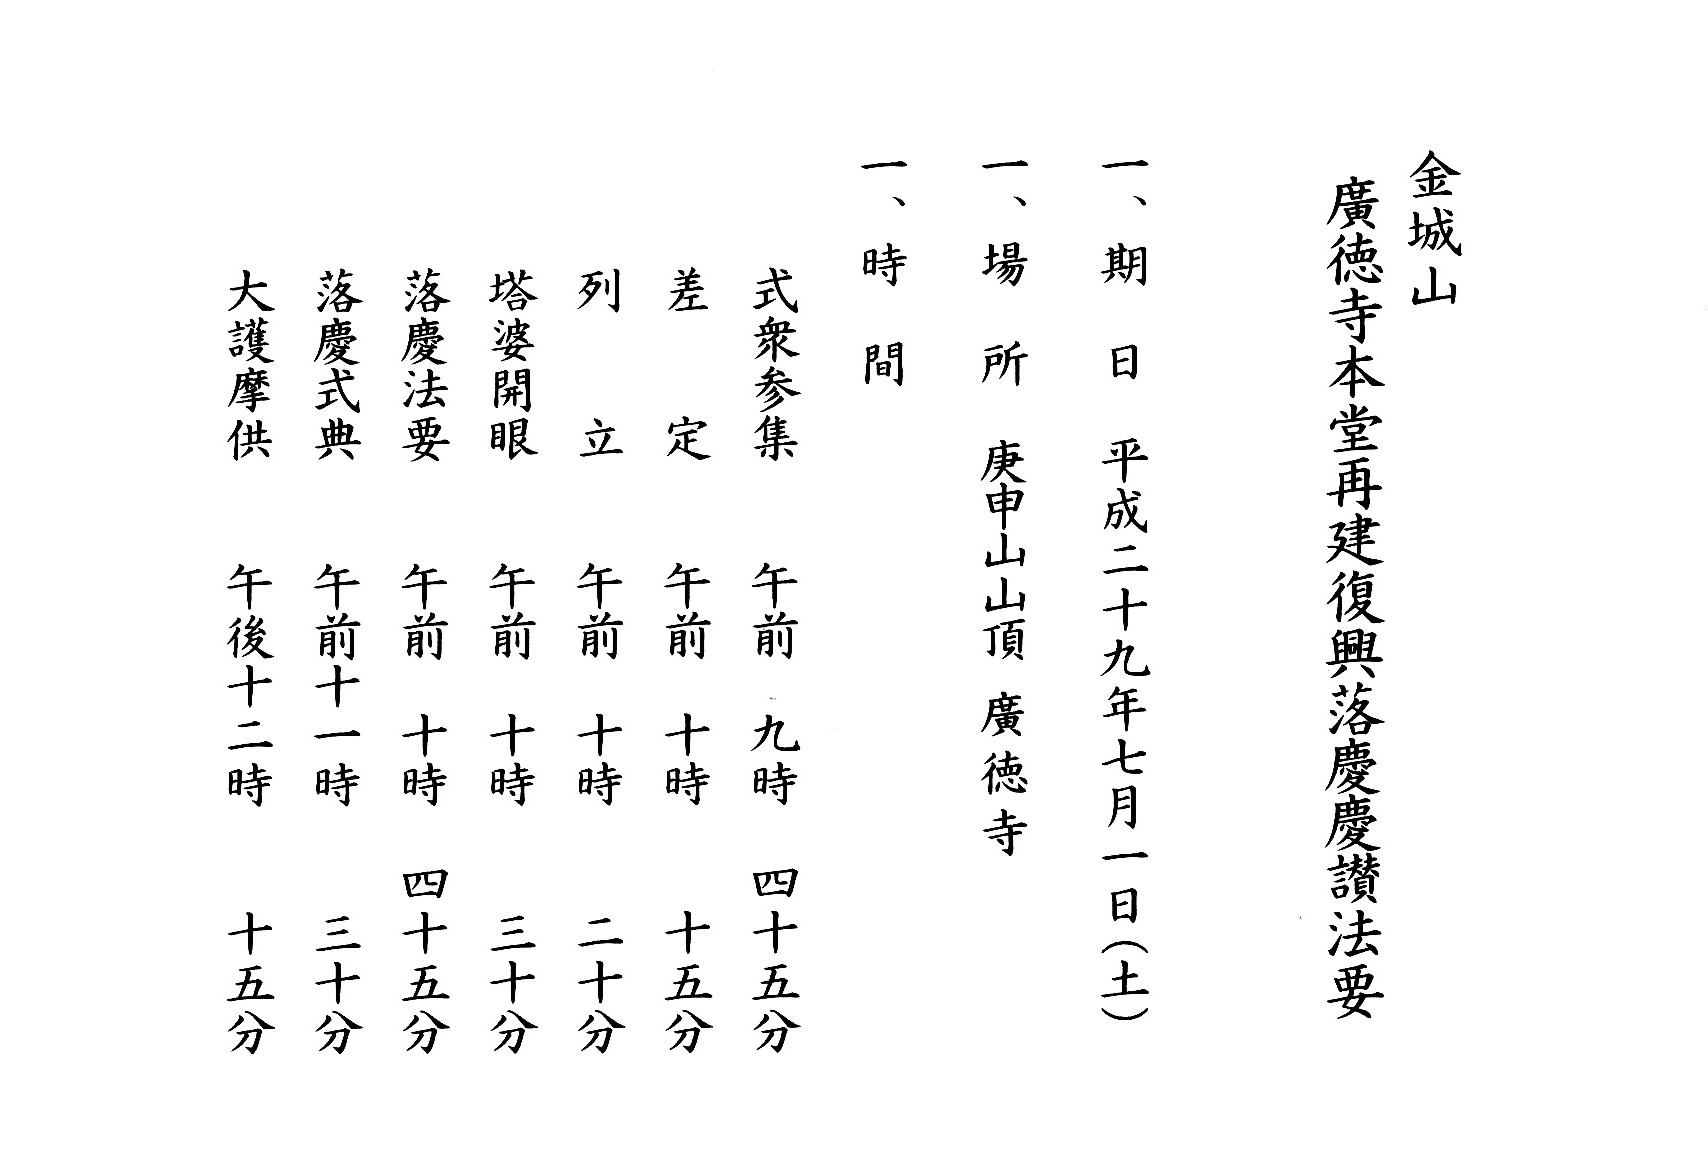 金城山
廣徳寺本堂再建復興落慶慶讃法要
一、期　日　平成二十九年七月一日(土)
一、場　所　庚申山山頂 廣徳寺
一、時　間
式衆参集　午前　九時　四十五分
差　定　午前　十時　十五分
列　立　午前　十時　二十分
塔婆開眼　午前　十時　三十分
落慶法要　午前　十時　四十五分
落慶式典　午前十一時　三十分
大護摩供　午後十二時　十五分